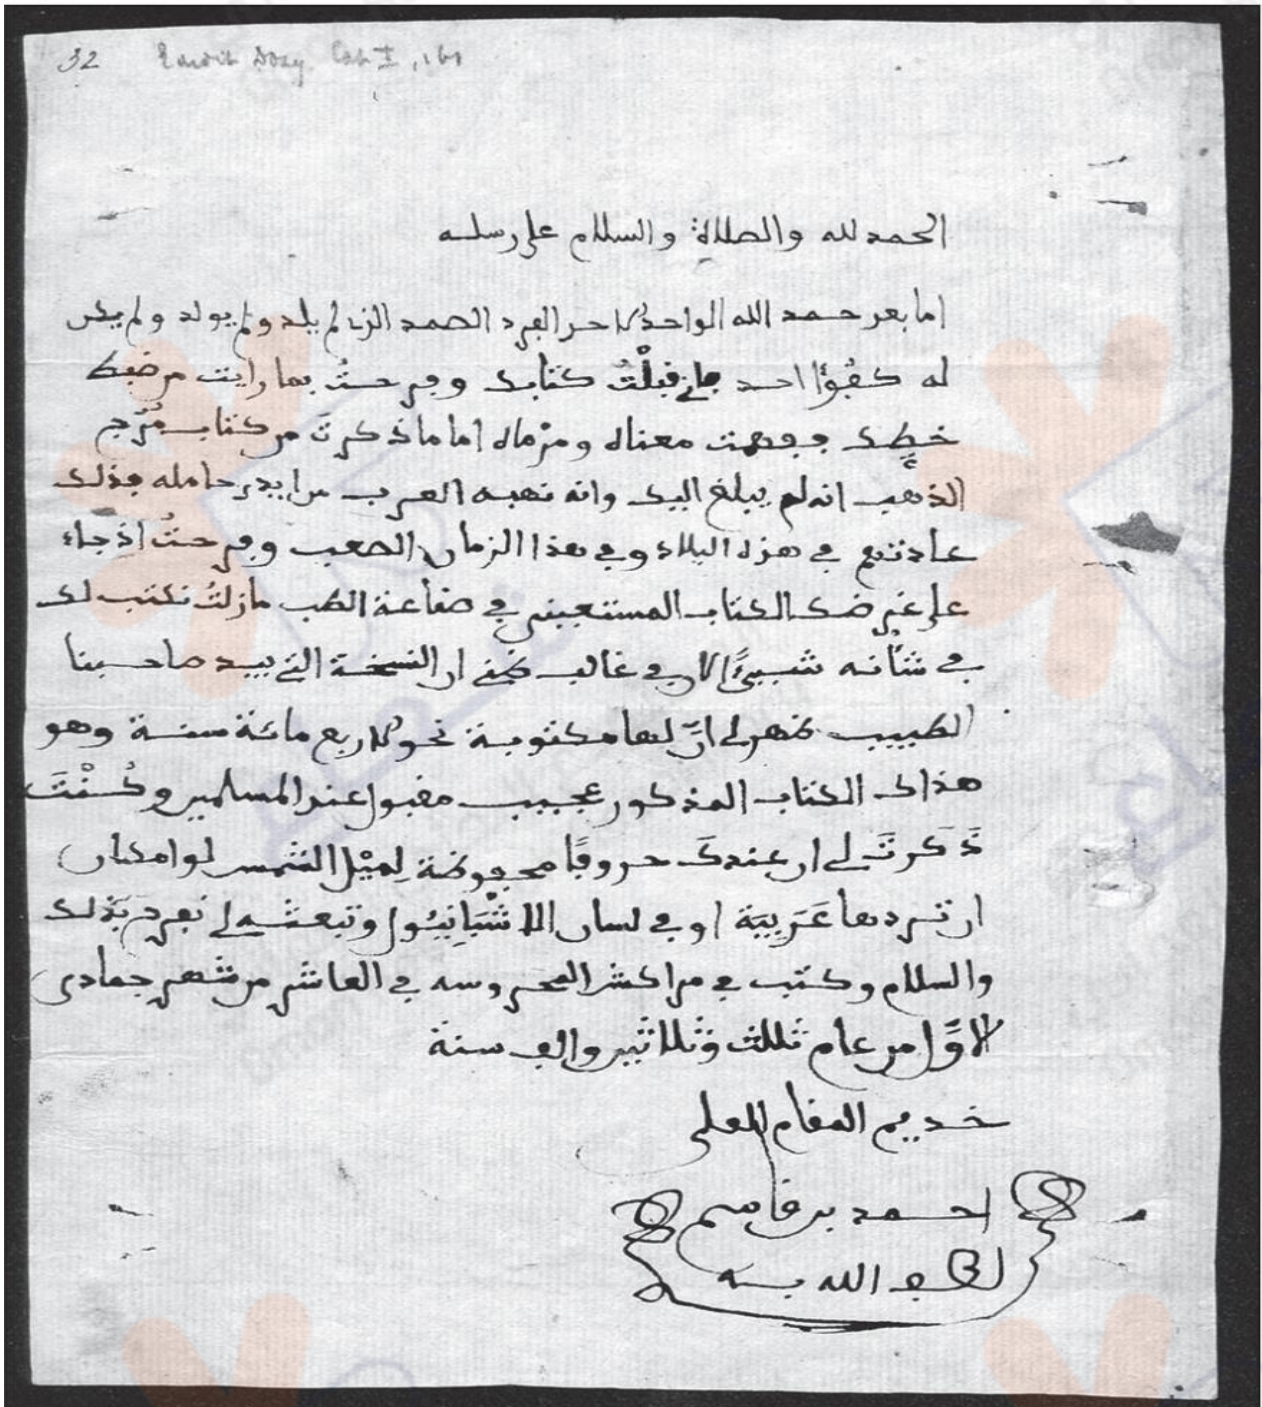 32 Dozy Cat I, 161
الحمد لله والصلاة والسلام على رسله
اما بعد حمد الله الواحد الاحد الفرد الصمد الذي لم يلد ولم يولد ولم يكن
له كفؤا احد فاني قبلْتُ كتابك وفرحتُ بما رايت من ضبط
خطك وفهمت معناه ومرماه اما ما ذكرتَ من كتاب مُرُج
الذهب انه لم يبلغ اليك وانه نهبه العرب من ايدي حامله فذلك
عادتهم في هذه البلاد وفي هذا الزمان الصعب وفرحتُ اذ جاء
على غرضك الكتاب المستعيني في صناعة الطب مازلتُ نكتب لك
في شانه شيئًا لان في غالب ظني ان النسخة التي بيد صاحبنا
الطبيب ظهر لي انّ لها مكتوبة نحو الاربع مائة سنة وهو
هذاك الكتاب المذكور عجيب مقبول عند المسلمين وكُنْتَ
ذَكَرتَ لي ان عندكَ حروفًا محفوظة لِميْل الشمس لو امكن
ان تردها عَرَبِيَة او في لسان الاشْبَانِيُول وتبعثه لي نفرح بذلك
والسلام وكتب في مراكش المحروسه في العاشر من شهر جمادى
الاوّل من عام ثلاث وثلاثين والف سنة
خديم المقام العلي
احمد بن قاسم
لطف الله به